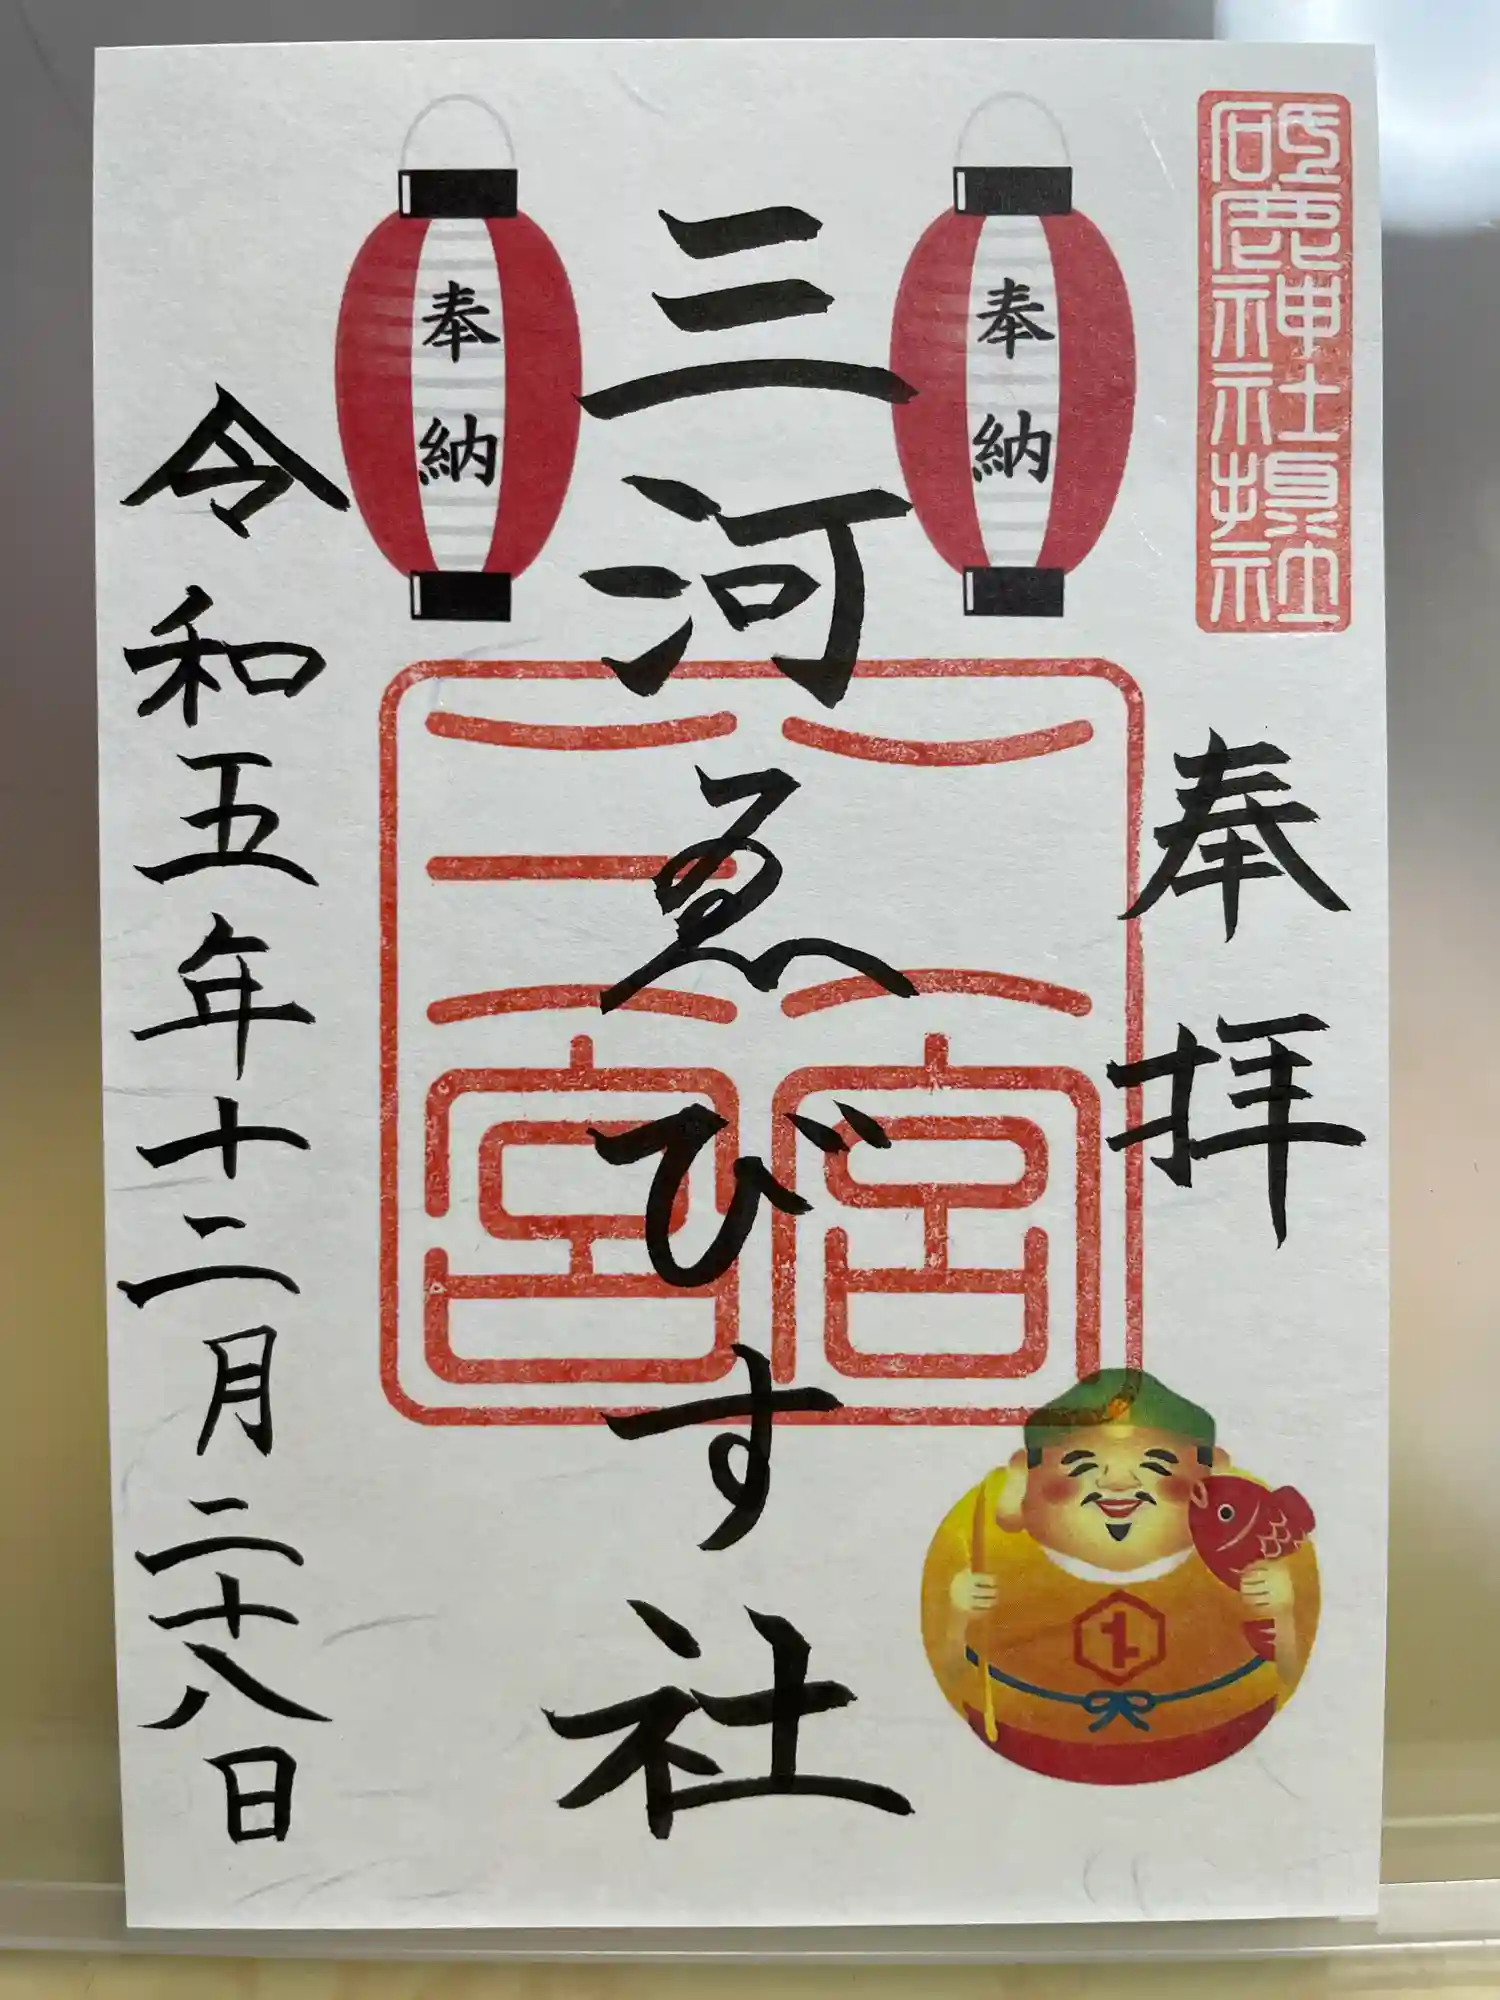 砥鹿神社境
内末社
奉拝
奉納
三河ゑびす社
奉納
二宮
三宮
令和五年十二月二十八日